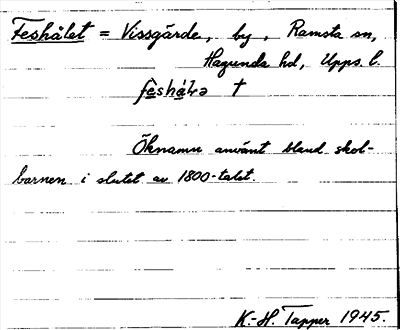 Feshålet = Vissgärde, by, Ramsta sn,
Hagunda hd, Upps. l.
feshå̀lə †
Öknamn använt bland skol-
barnen i slutet av 1800-talet.
K.-H. Tapper 1945.